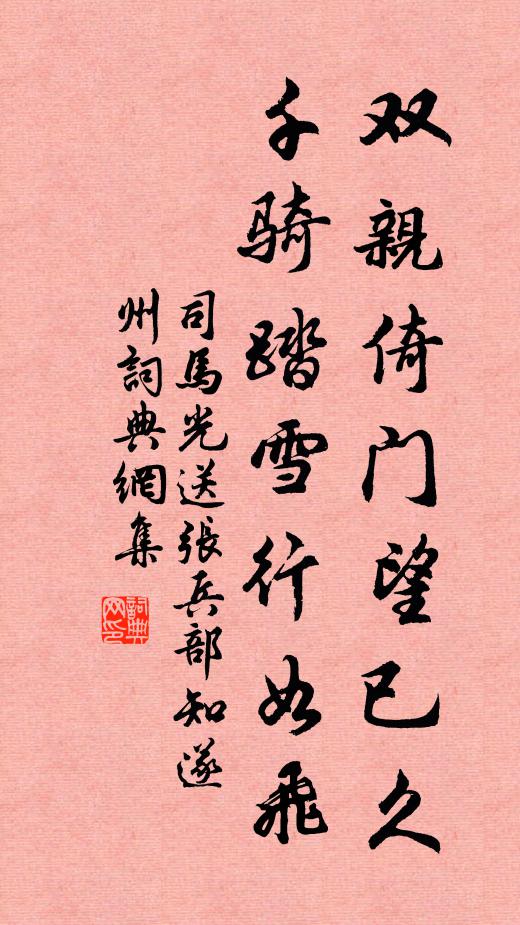 双親倚门望已久
千骑踏雪行如飛
司馬光送張兵部知遂
州詞典網集
詞典网印